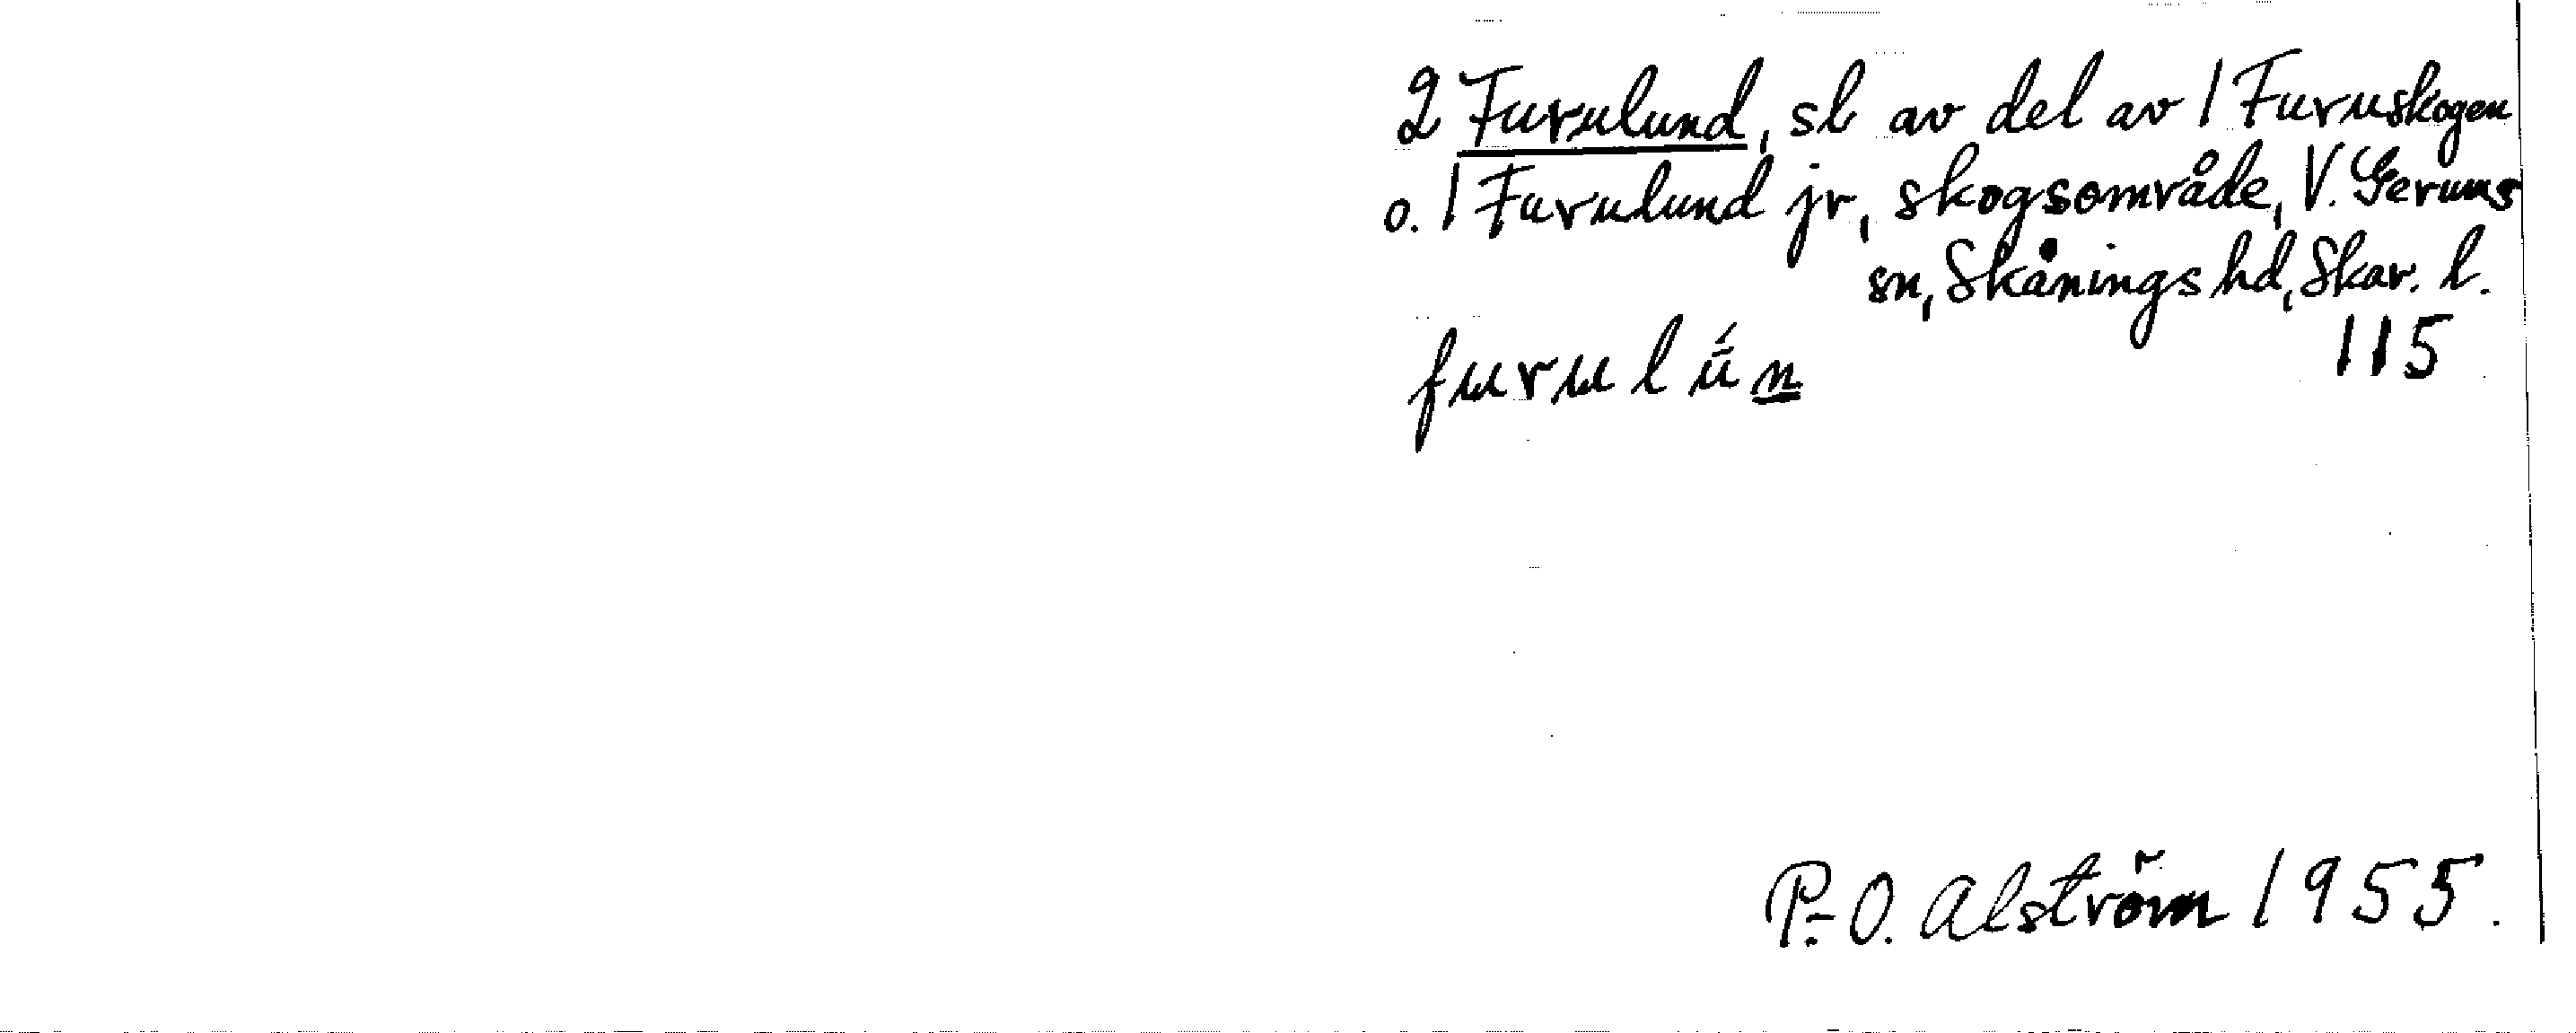 2 Furulund, sl av del av 1 Furuskogen
o. 1 Furulund jr, skogsområde, V. Gerums
sn, Skånings hd, Skar. l.
115
furulū́n
P.-O. Alström 1955.